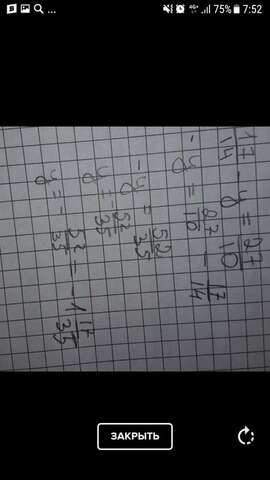 4G+ 75% 7:52
17/14 - y = 27/10
- y = 27/10 - 17/14
- y = 52/35
y = - 52/35
y = - 52/35 = - 1 17/35
ЗАКРЫТЬ